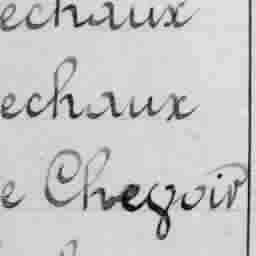 echaux
echaux
e Chegoir